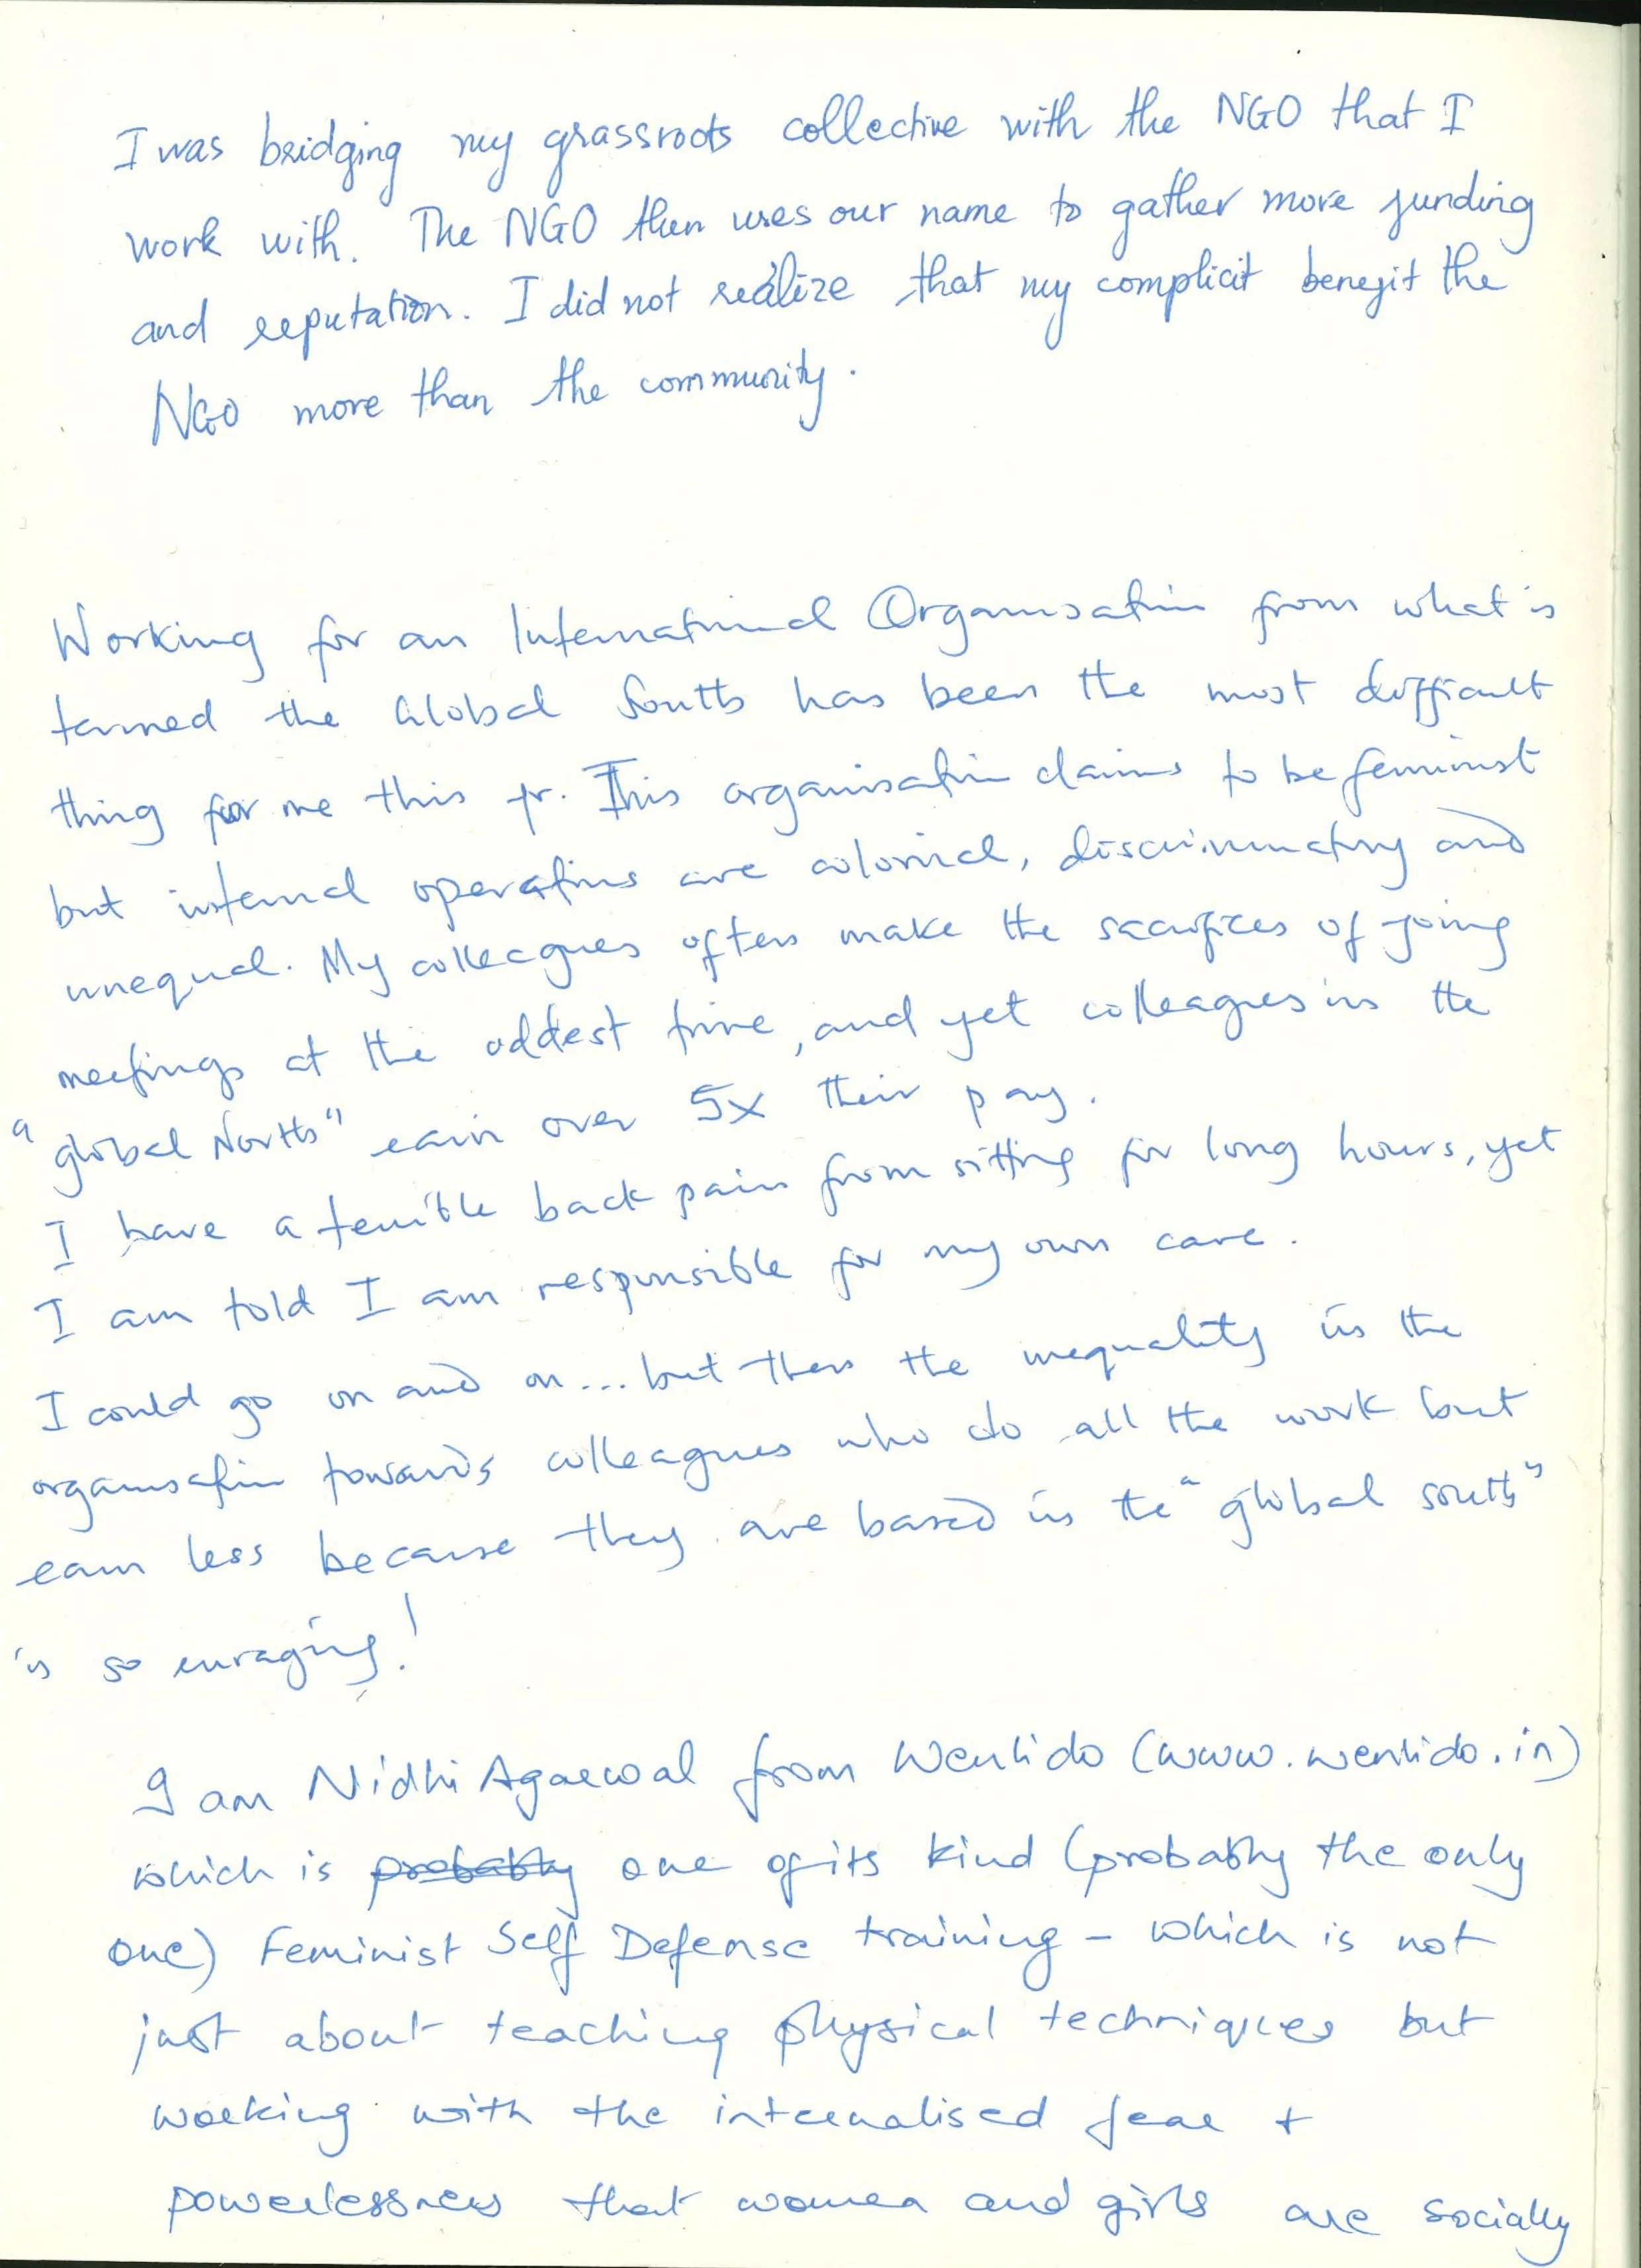 I was bridging my grassroots collective with the NGO that I
work with. The NGO then uses our name to gather more funding
and reputation. I did not realize that my complicit benefit the
NGO more than the community.
Working for an International Organisation from what is
termed the Global South has been the most difficult
thing for me this yr. This organisation claims to be feminist
but internal operations are colonial, discriminatory and
unequal. My colleagues often make the sacrifices of joing
meetings at the oddest time, and yet colleagues in the
"global North" earn over 5x their pay.
I have a terrible back pain from sitting for long hours, yet
I am told I am responsible for my own care.
I could go on and on... but then the inequality in the
organisation towards colleagues who do all the work but
earn less because they are based in the "global south"
is so enraging!
I am Nidhi Agarwal from Wenlido (www.wenlido.in)
which is probably one of its kind (probably the only
one) Feminist Self Defense training - which is not
just about teaching physical techniques but
working with the internalised fear +
powerlessness that women and girls are socially